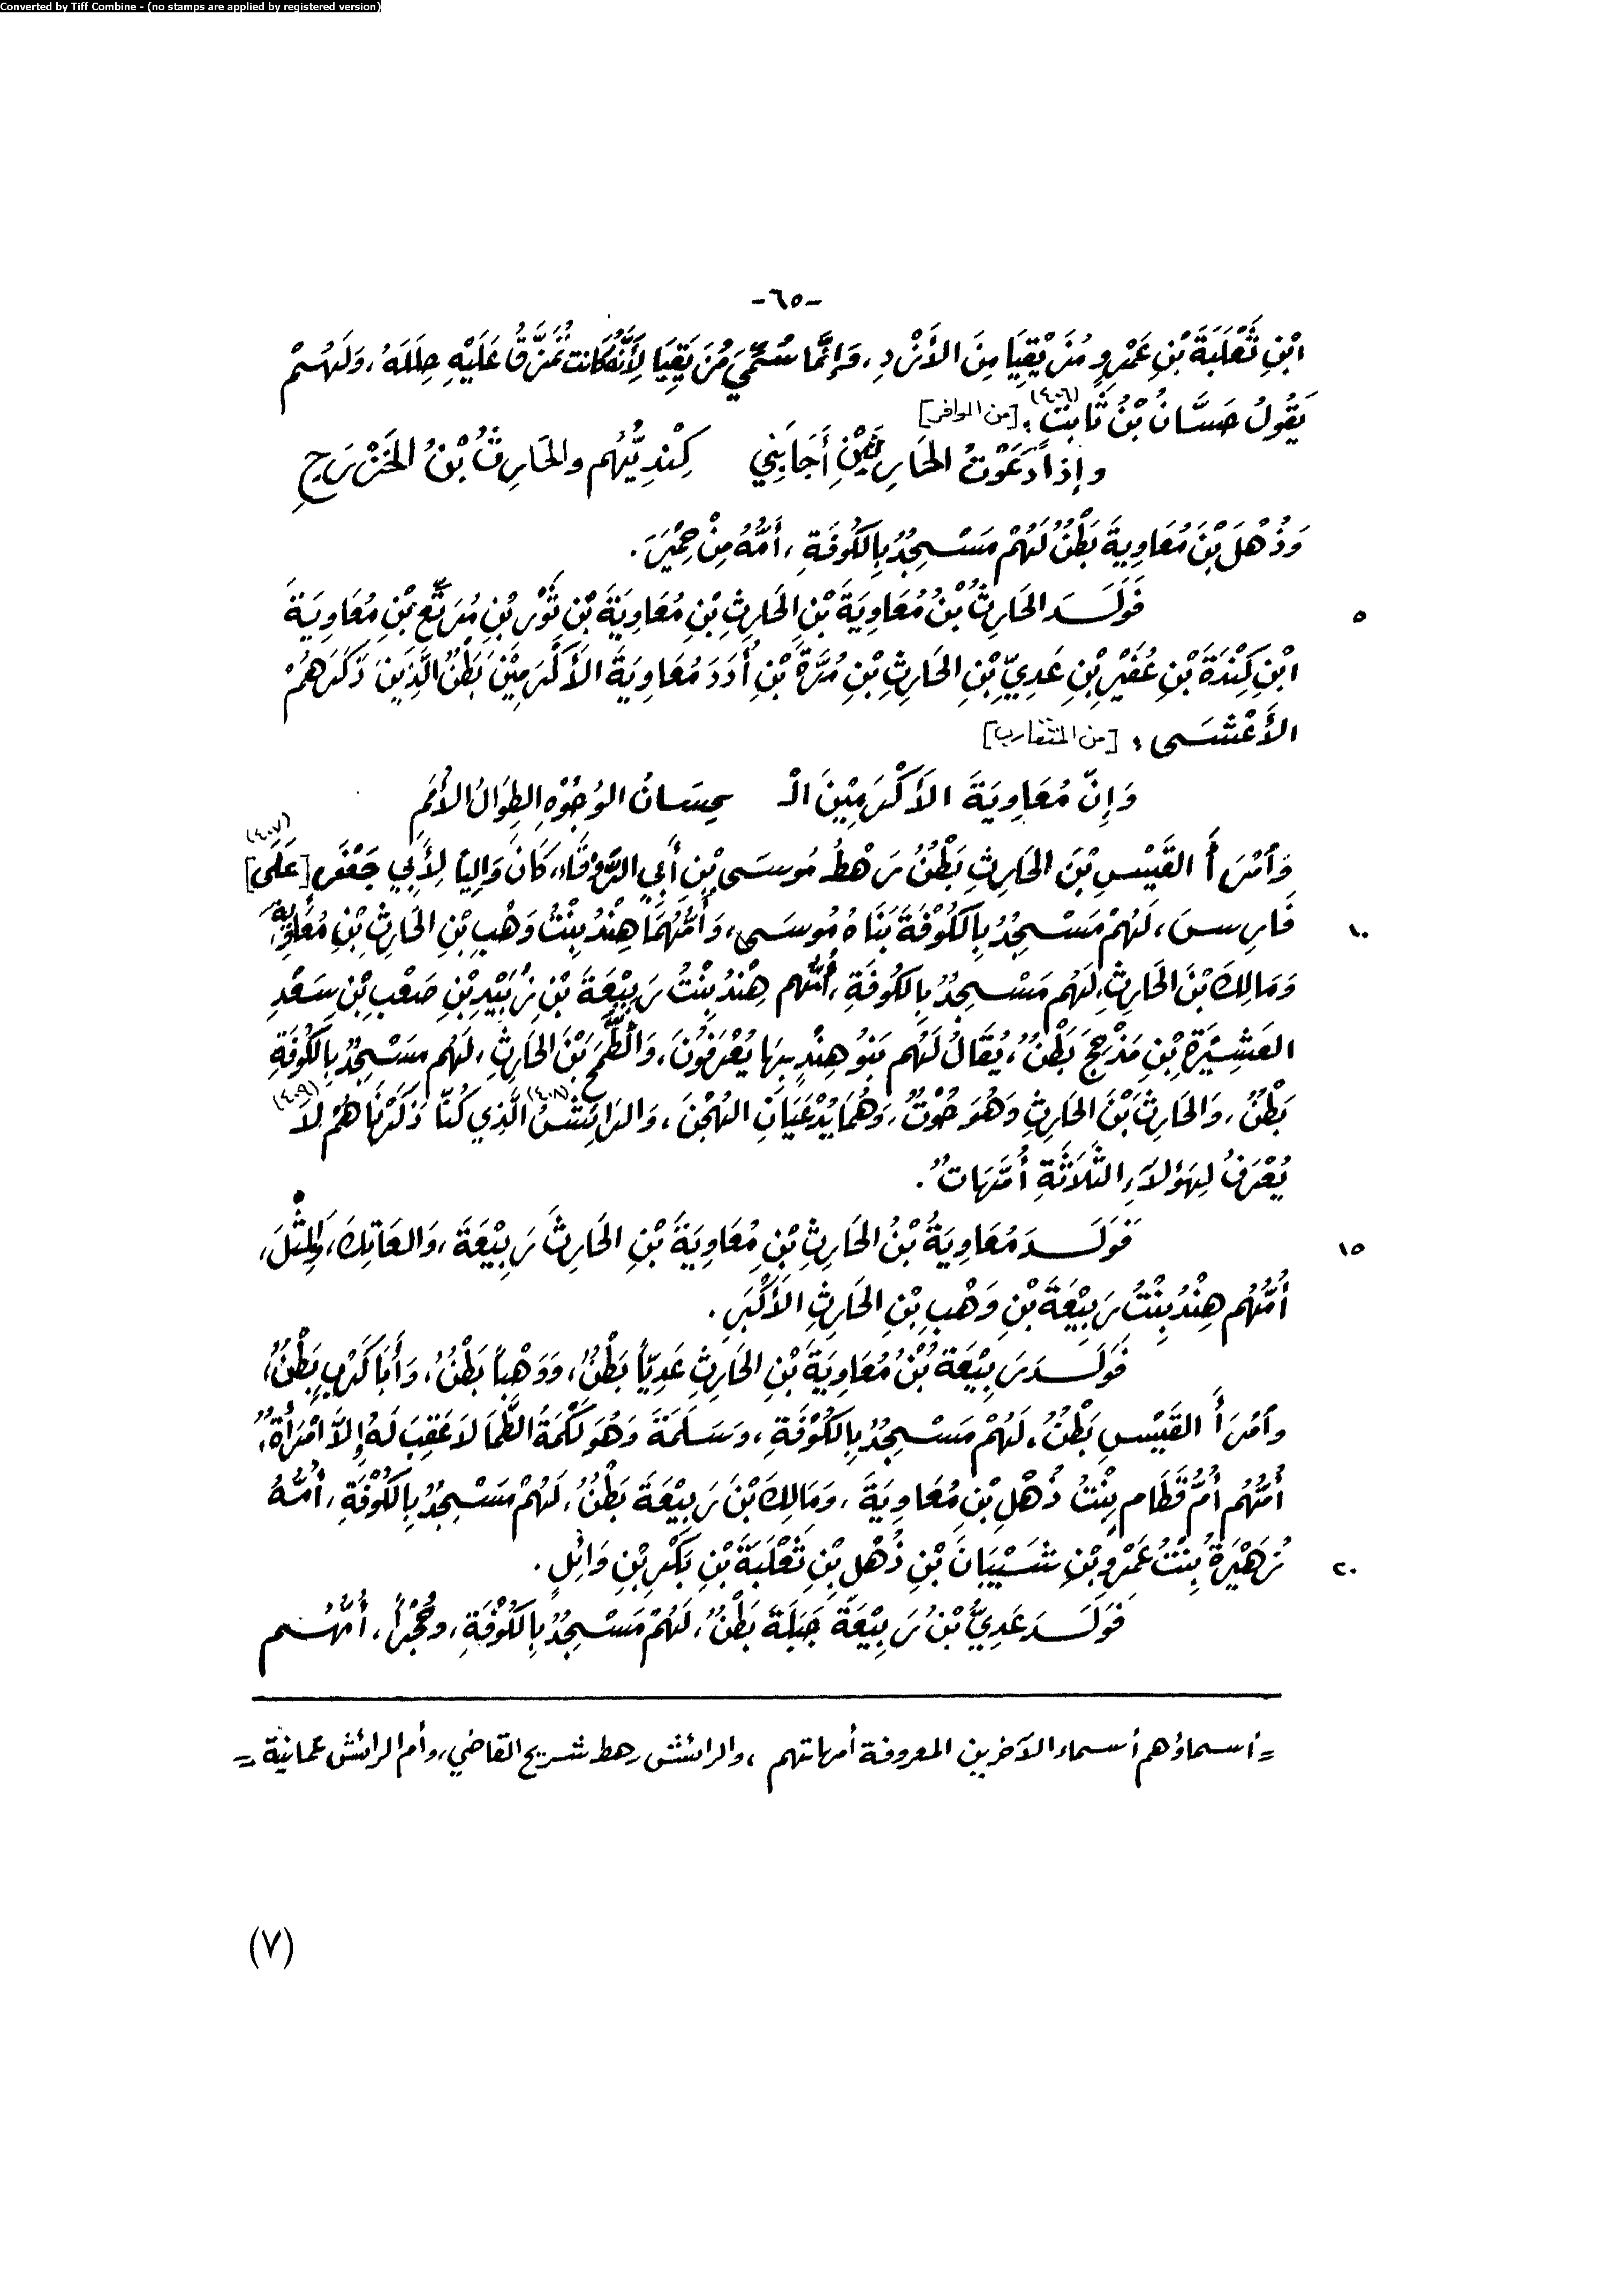 Converted by Tiff Combine - (no stamps are applied by registered version)
-٦٥-
ابْنِ ثَعْلَبَةَ بْنِ عَمْرٍو مُزَيْقِيَا مِنَ الأَزْدِ، وَإِنَّمَا سُمِّيَ مُزَيْقِيَا لِأَنَّهُ كَانَتْ تُمَزَّقُ عَلَيْهِ حِلَلَهُ، وَلَهُمْ
يَقُولُ حَسَّانُ بْنُ ثَابِتٍ(٤٠٦): [من الوافر]
وإِذَا دَعَوْتُ الحَارِثَيْنِ أَجَابَنِي كِنْدِيُّهُم والحَارِثُ بْنُ الخَزْرَجِ
وَذُهْلَ بْنَ مُعَاوِيةَ بَطْنٌ لَهُمْ مَسْجِدٌ بِالكُوفَةِ، أُمُّهُ مِنْ حِمْيَرَ.
٥ فَوَلَدَ الحَارِثُ بْنُ مُعَاوِيَةَ بْنِ الحَارِثِ بْنِ مُعَاوِيَةَ بْنِ ثَوْرِ بْنِ مُرَتِّعِ بْنِ مُعَاوِيَةَ
ابْنِ كِنْدَةَ بْنِ عُفَيْرِ بْنِ عَدِيِّ بْنِ الحَارِثِ بْنِ مُرَّةَ بْنِ أُدَدَ مُعَاوِيَةَ الأَكْرَمِيْنَ بَطْنٌ الَّذِينَ ذَكَرَهُمْ
الأَعْشَى: [من المتقارب]
وَإِنَّ مُعَاوِيَةَ الأَكْرَمِيْنَ الْـ ـحِسَانُ الوُجُوْهِ الطِوَالُ الأُمَمِ
وَامْرَأَ القَيْسِ بْنَ الحَارِثِ بَطْنٌ رَهْطُ مُوسَى بْنِ أَبِي الرَّوْقَاءِ، كَانَ وَالِياً لِأَبِي جَعْفَرٍ [عَلَى](٤٠٧)
١٠ فَارِسَ، لَهُمْ مَسْجِدٌ بِالكُوْفَةِ بَنَاهُ مُوسَى، وَأُمُّهُمَا هِنْدُ بِنْتُ وَهْبِ بْنِ الحَارِثِ بْنِ مُعَاوِيَةَ،
وَمَالِكَ بْنَ الحَارِثِ، لَهُم مَسْجِدٌ بِالكُوفَةِ، أُمُّهُم هِنْدُ بِنْتُ رَبِيْعَةَ بْنِ زُبَيْدِ بْنِ صَعْبِ بْنِ سَعْدِ
العَشِيْرَةِ بْنِ مَذْحِجَ بَطْنٌ، يُقَالُ لَهُم بَنُو هِنْدٍ بِهَا يُعْرَفُونَ، وَالطُّمَحَ بْنَ الحَارِثِ، لَهُم مَسْجِدٌ بِالكُوفَةِ
بَطْنٌ، وَالحَارِثَ بْنَ الحَارِثِ وَهُوَ حُوْتٌ، وَهُمَا يُدْعَيَانِ الهُجْنَ(٤٠٨)، وَالرَائِشُ الَّذِي كُنَّا ذَكَرْنَا هُمْ لاَ(٤٠٩)
يُعْرَفُ لِهَؤُلاَءِ الثَّلاَثَةِ أُمَّهَاتٌ.
١٥ فَوَلَدَ مُعَاوِيَةُ بْنُ الحَارِثِ بْنِ مُعَاوِيَةَ بْنِ الحَارِثِ رَبِيْعَةَ، وَالعَاتِكَ، وَالمِثْلَ،
أُمُّهُم هِنْدُ بِنْتُ رَبِيْعَةَ بْنِ وَهْبِ بْنِ الحَارِثِ الأَكْبَرِ.
فَوَلَدَ رَبِيْعَةُ بْنُ مُعَاوِيَةَ بْنِ الحَارِثِ عَدِيّاً بَطْنٌ، وَوَهْباً بَطْنٌ، وَأَبَا كَرِبٍ بَطْنٌ،
وامْرَأَ القَيْسِ بَطْنٌ، لَهُمْ مَسْجِدٌ بِالكُوْفَةِ، وَسَلَمَةَ وَهُوَ لَكْمَةُ الظَّمَا لاَ عَقِبَ لَهُ إِلاَّ امْرَأَةٌ،
أُمُّهُم أُمُّ قَطَامِ بِنْتُ ذُهْلِ بْنِ مُعَاوِيَةَ، وَمَالِكَ بْنَ رَبِيْعَةَ بَطْنٌ، لَهُمْ مَسْجِدٌ بِالكُوْفَةِ، أُمُّهُ
٢٠ زُهَيْرَةُ بِنْتُ عَمْرِو بْنِ شَيْبَانَ بْنِ ذُهْلِ بْنِ ثَعْلَبَةَ بْنِ بَكْرِ بْنِ وَائِلٍ.
فَوَلَدَ عَدِيُّ بْنُ رَبِيْعَةَ جَبَلَةَ بَطْنٌ، لَهُمْ مَسْجِدٌ بِالكُوْفَةِ، وحُجْراً، أُمُّهُم
= أسماؤهم أسماء الآخرين المعروفة أمهاتهم، والرائش رهط شريح القاضي، وأم الرائش عمانية =
(٧)